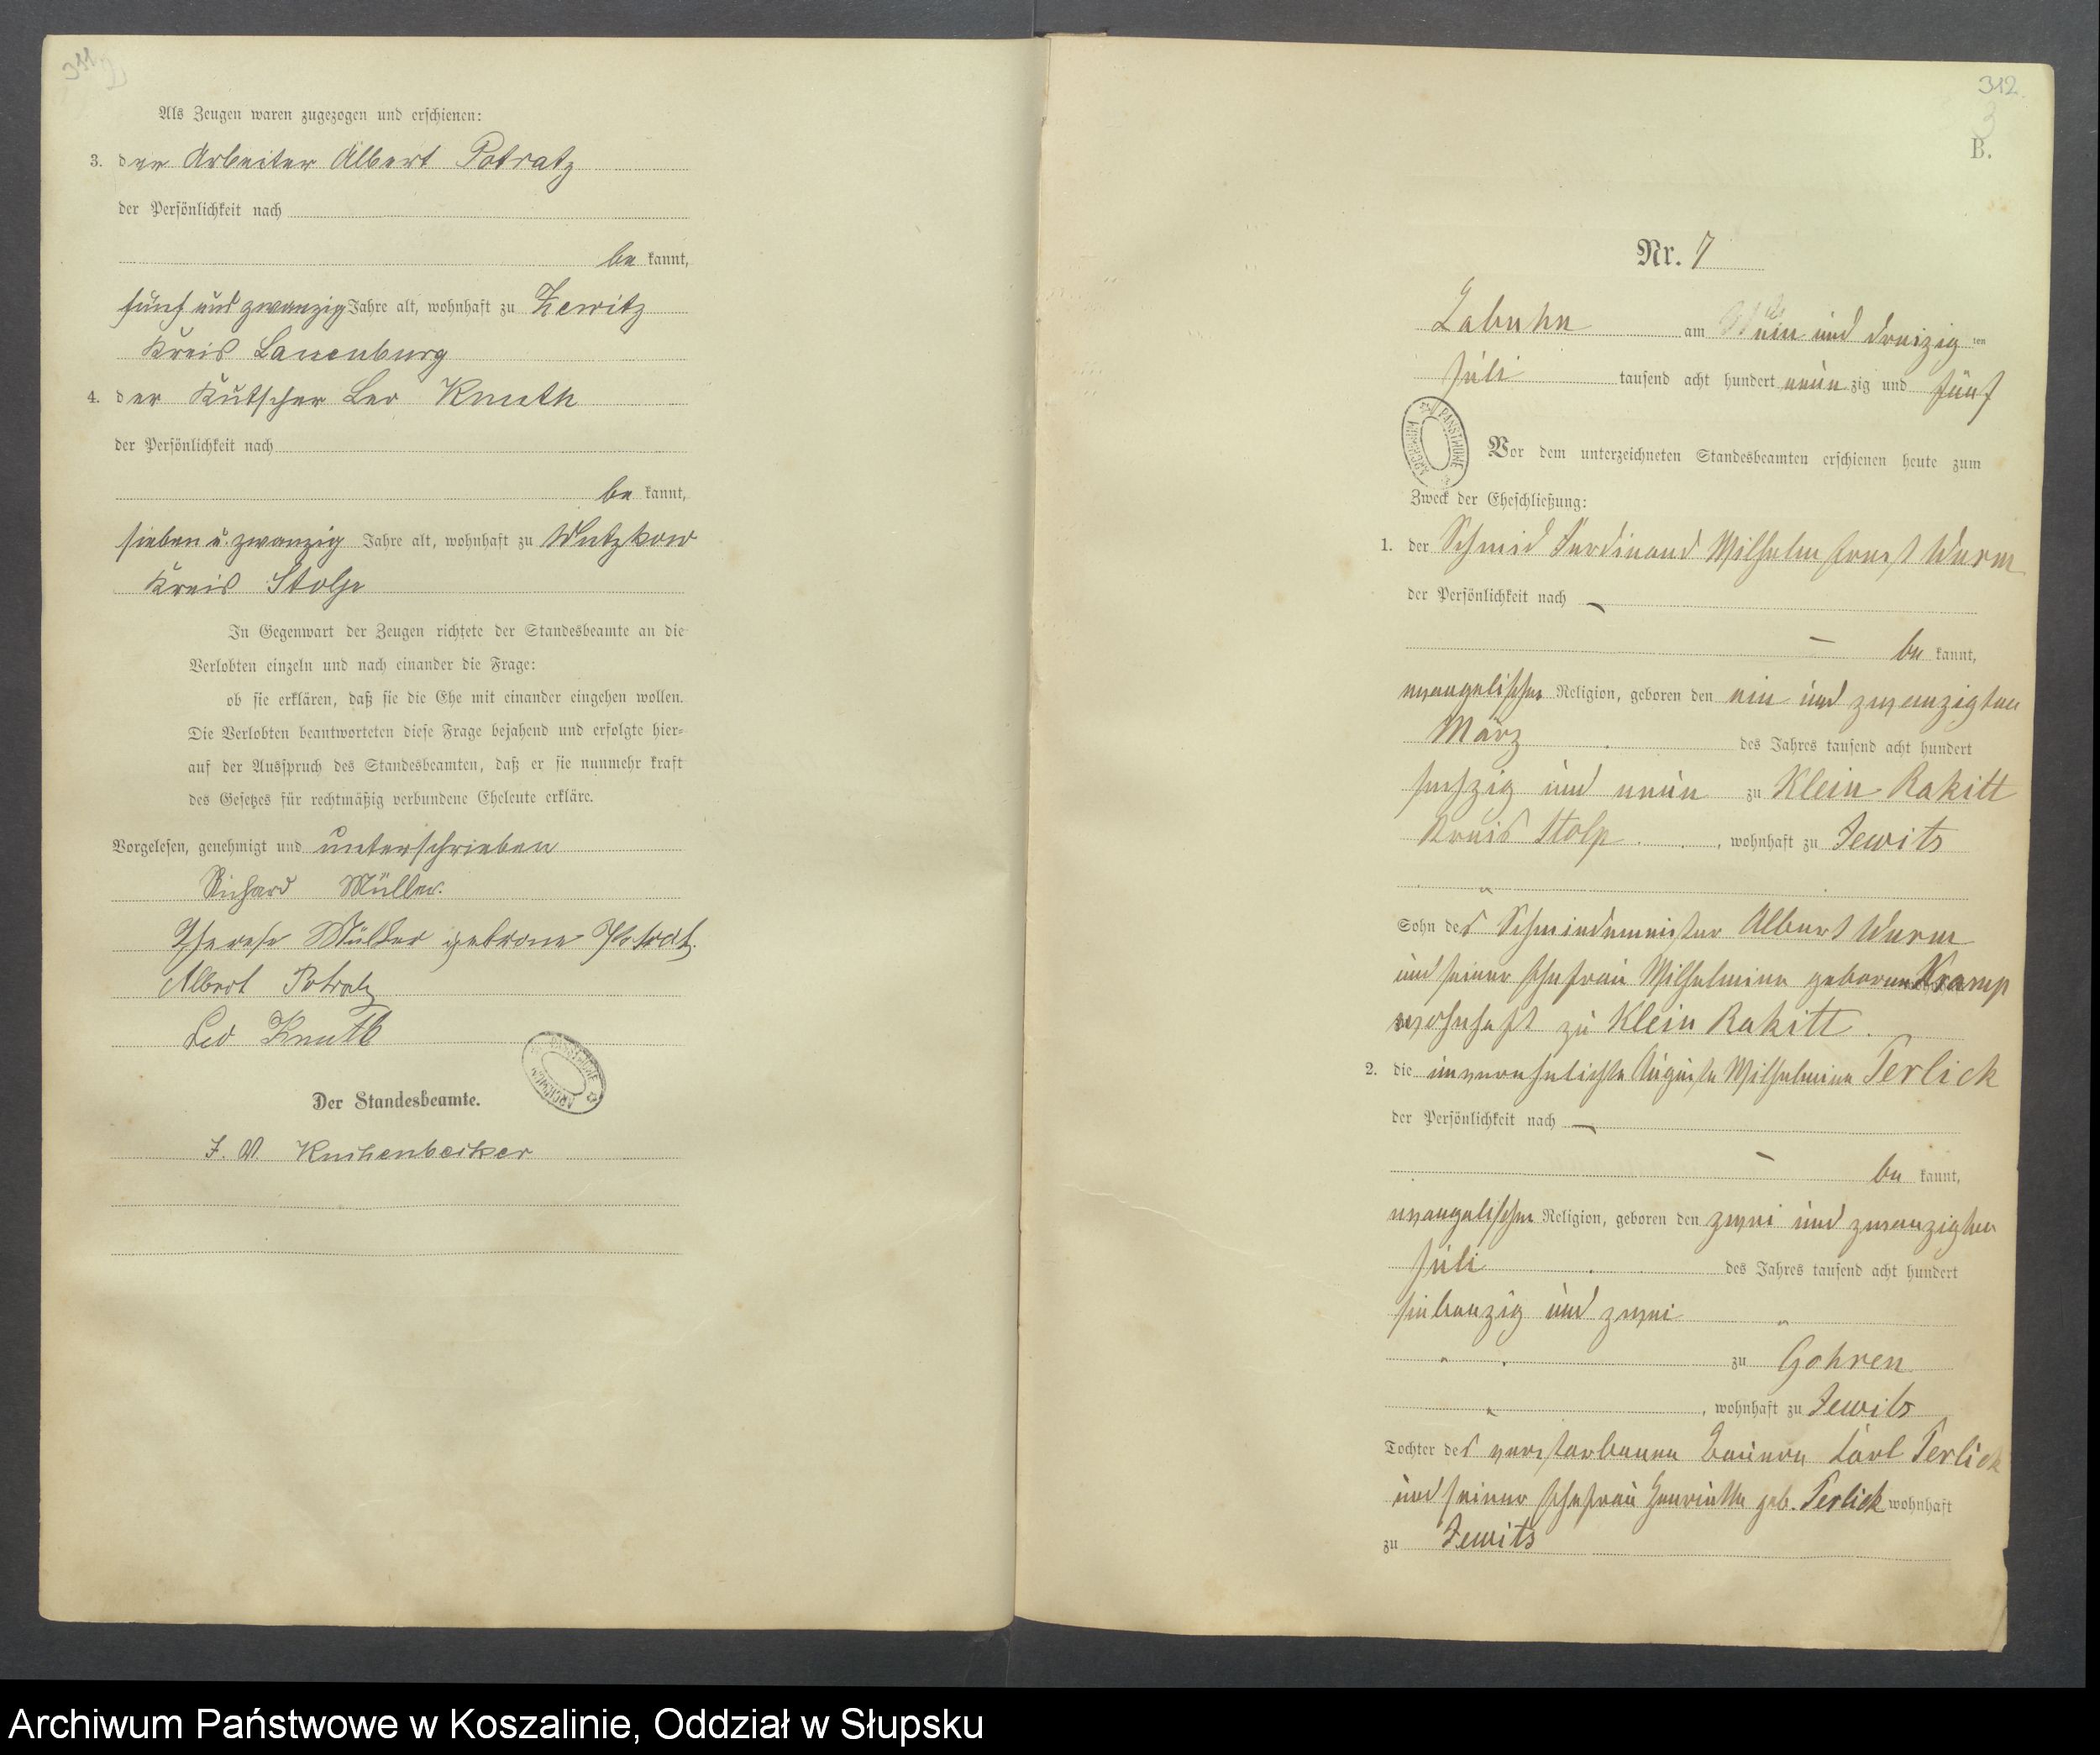 311
Als Zeugen waren zugezogen und erschienen:
3. der Arbeiter Albert Potratz
der Persönlichkeit nach
be kannt,
fünf und zwanzig Jahre alt, wohnhaft zu Zewitz
Kreis Lauenburg
4. der Kutscher Leo Knuth
der Persönlichkeit nach
be kannt,
sieben u. zwanzig Jahre alt, wohnhaft zu Wutzkow
Kreis Stolp
In Gegenwart der Zeugen richtete der Standesbeamte an die
Verlobten einzeln und nach einander die Frage:
ob sie erklären, daß sie die Ehe mit einander eingehen wollen.
Die Verlobten beantworteten diese Frage bejahend und erfolgte hier=
auf der Ausspruch des Standesbeamten, daß er sie nunmehr kraft
des Gesetzes für rechtmäßig verbundene Eheleute erkläre.
Vorgelesen, genehmigt und unterschrieben
Richard Müller.
Therese Müller geborene Potratz.
Albert Potratz
Leo Knuth
ARCHIWUM PAŃSTWOWE
Der Standesbeamte.
J. V. Kuchenbecker
312
B.
Nr. 7
Labuhn am ein und dreizig ten
Juli tausend acht hundert neun zig und fünf
ARCHIWUM PAŃSTWOWE
Vor dem unterzeichneten Standesbeamten erschienen heute zum
Zweck der Eheschließung:
1. der Schmid Ferdinand Wilhelm Ernst Wurm
der Persönlichkeit nach –
– be kannt,
evangelischer Religion, geboren den ein und zwanzigten
März des Jahres tausend acht hundert
sechzig und neun zu Klein Rakitt
Kreis Stolp, wohnhaft zu Zewits
Sohn des Schmiedemeister Albert Wurm
und seiner Ehefrau Wilhelmine geborene Kramp
wohnhaft zu Klein Rakitt.
2. die unverehelichte Auguste Wilhelmine Terlick
der Persönlichkeit nach –
– be kannt,
evangelischer Religion, geboren den zwei und zwanzigten
Juli des Jahres tausend acht hundert
siebenzig und zwei
zu Gohren
, wohnhaft zu Zewits
Tochter des verstorbenen Bauern Carl Terlick
und seiner Ehefrau Henriette geb. Terlick wohnhaft
zu Zewits
Archiwum Państwowe w Koszalinie, Oddział w Słupsku